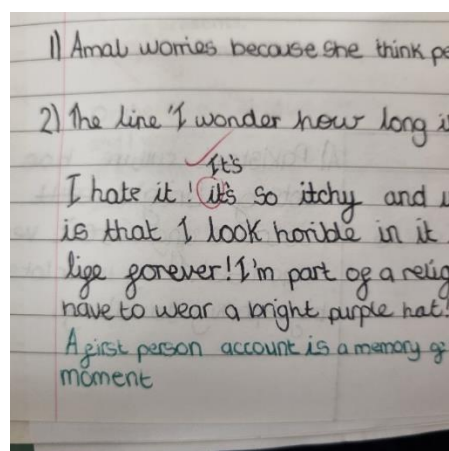 1) Amal worries because she think pe
2) The line 'I wonder how long i
It's
I hate it! it's so itchy and
is that I look horible in it
life forever! I'm part of a relig
have to wear a bright purple hat!
A first person account is a memory of
moment